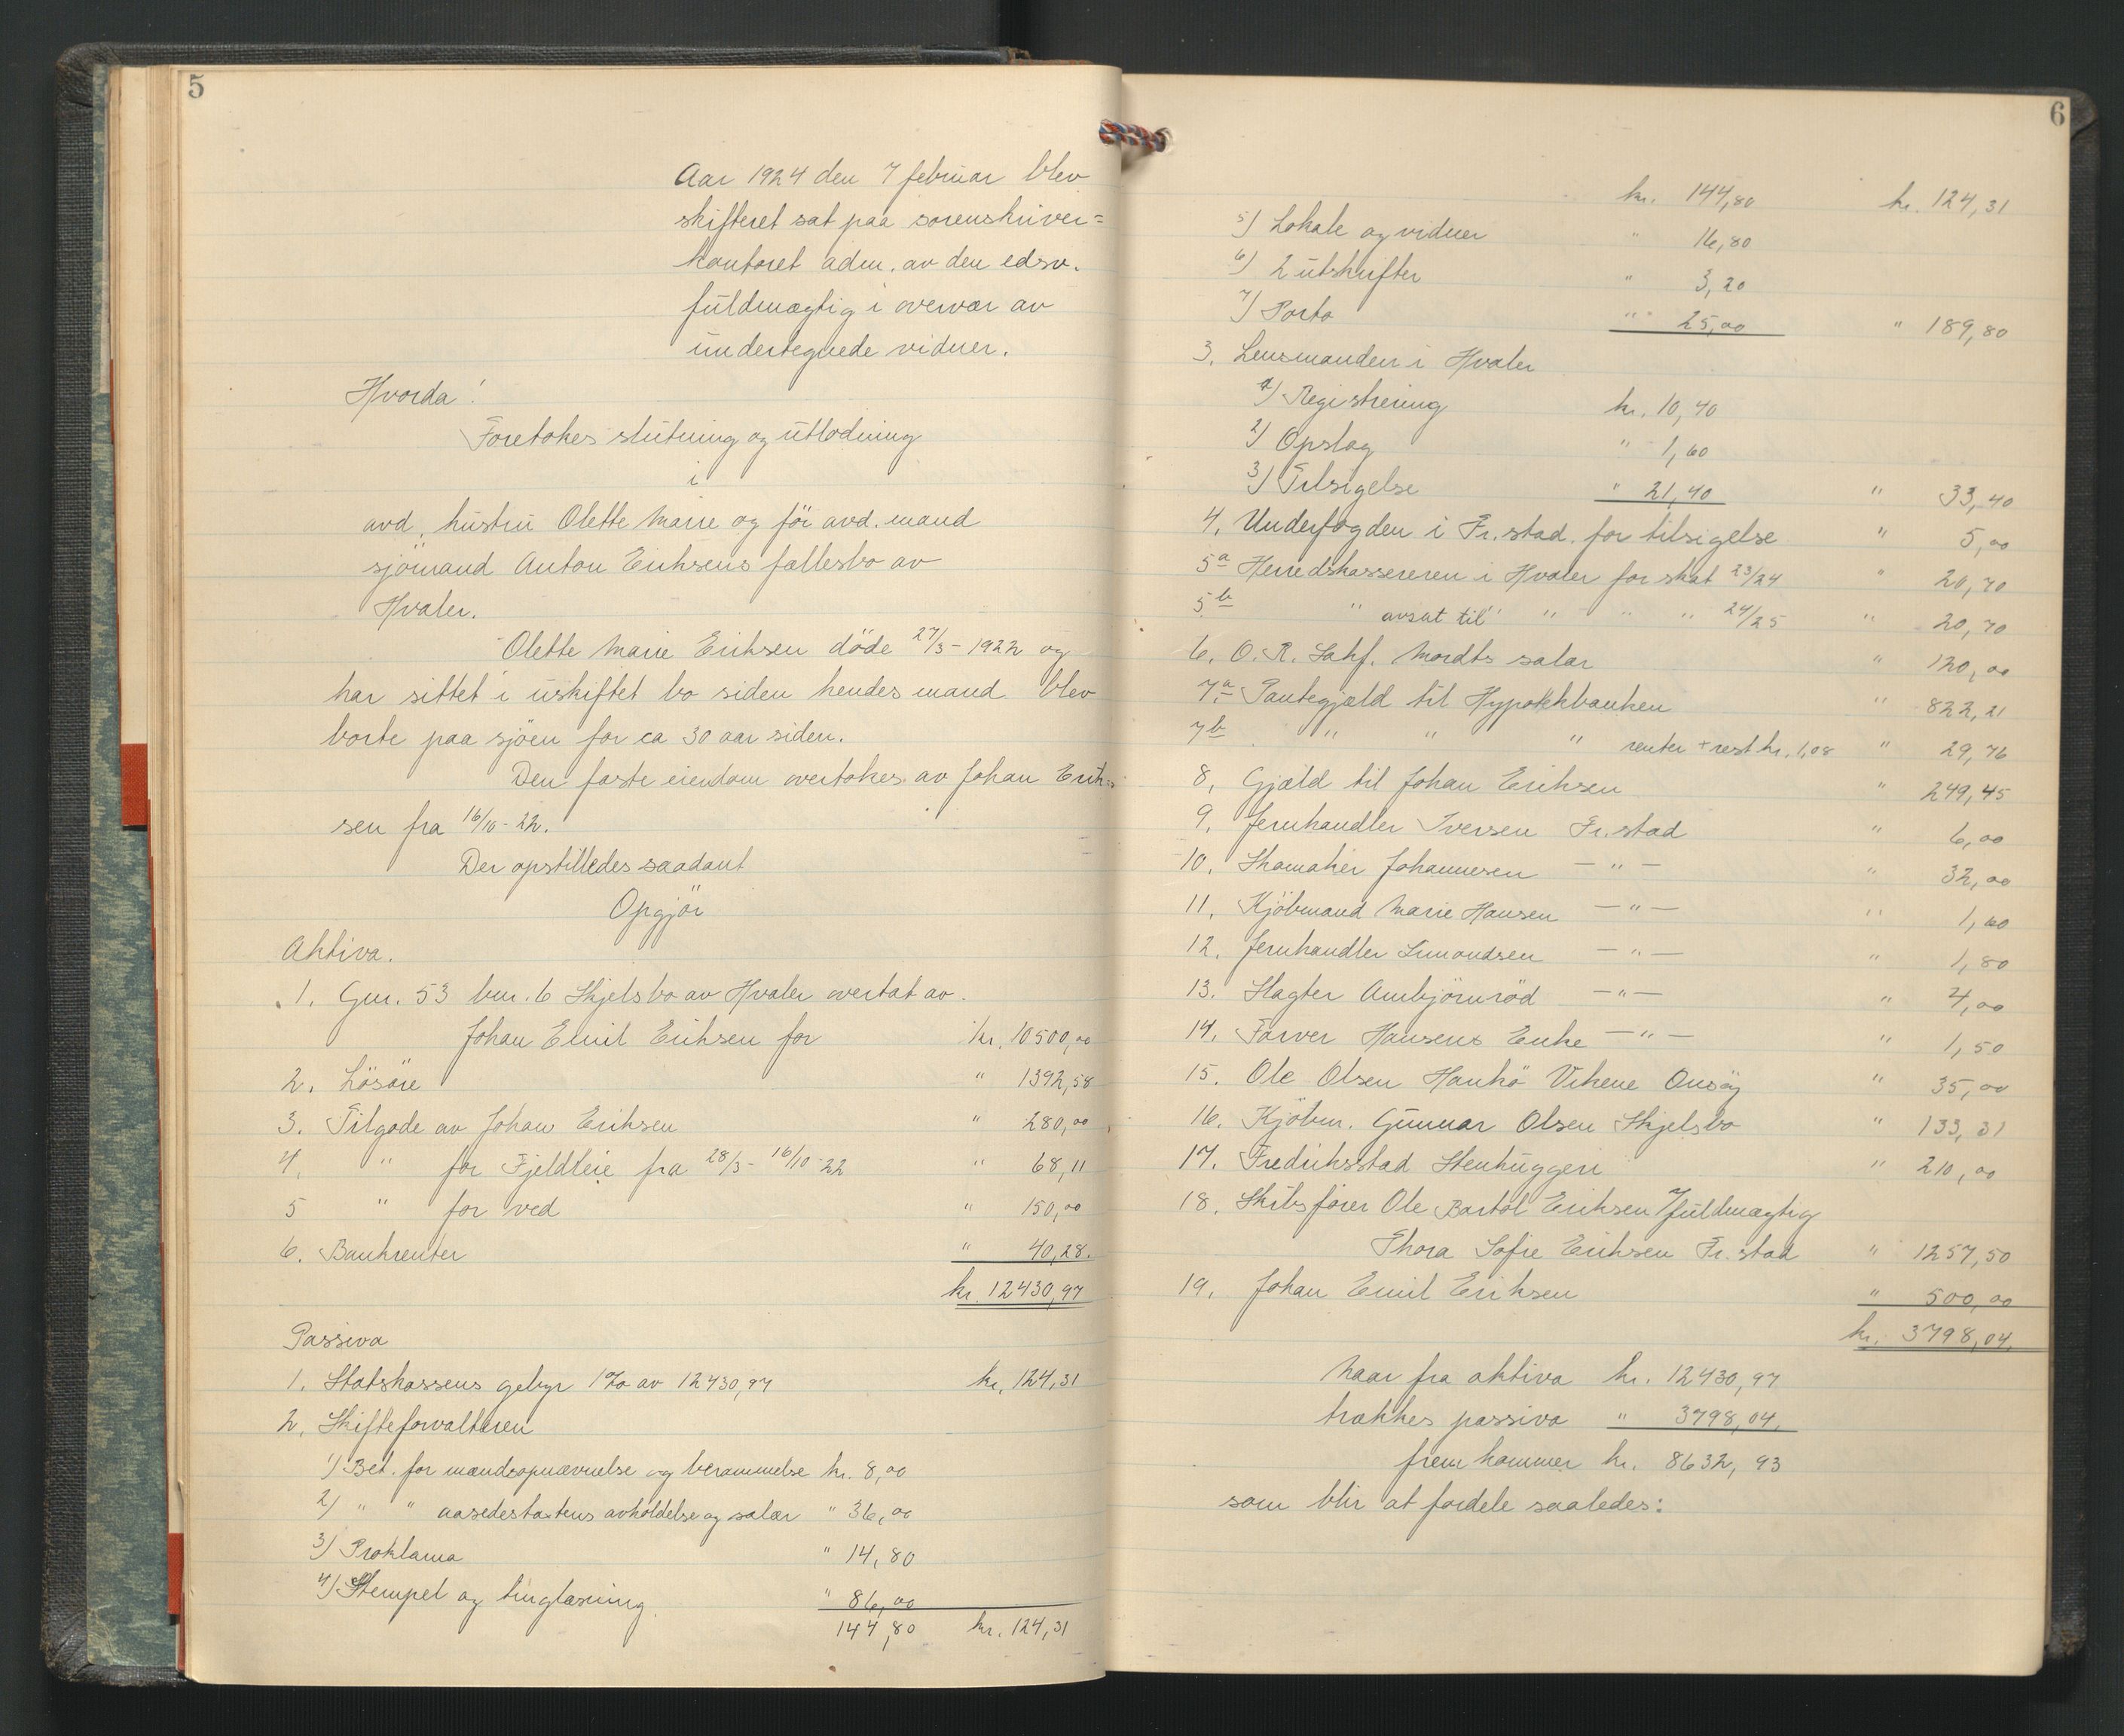 5
Aar 1924 den 7 februar blev
skifteret sat paa sorenskriver=
kontoret adm. av den edsv.
fuldmægtig i overvær av
undertegnede vidner.
Hvorda!
Foretokes slutning og utlodning
i
avd. hustru Olette Marie og för avd. mand
sjömand Anton Eriksens fællesbo av
Hvaler.
Olette Marie Eriksen döde 27/3-1922 og
har sittet i uskiftet bo siden hendes mand blev
borte paa sjöen for ca 30 aar siden.
Den faste eiendom overtokes av Johan Erik=
sen fra 16/10-22.
Der opstilledes saadant
Opgjör
Aktiva.
1. Gnr. 53 bnr. 6 Skjelsbo av Hvaler overtat av
Johan Emil Eriksen for kr. 10500,00
2. Lösöre " 1392,58
3. Tilgode av Johan Eriksen " 280,00
4. " for Fjeldleie fra 28/3-16/10-22 " 68,11
5 " for ved " 150,00
6. Bankrenter " 40,28.
kr. 12430,97
Passiva
1. Statskassens gebyr 1% av 12430,97 kr. 124,31
2. Skifteforvalteren
1) Bet. for mændsopnævnelse og berammelse kr. 8,00
2) " " aasedestaxtens avholdelse og salær " 36,00
3) Proklama " 14,80
4) Stempel og tinglæsning " 86,00
144,80 kr. 124,31
6
kr. 144,80 kr. 124,31
5) Lokale og vidner " 16,80
6) 2 utskrifter " 3,20
7) Porto " 25,00 " 189,80
3. Lensmanden i Hvaler
1) Registrering kr. 10,40
2) Opslag " 1,60
3) Tilsigelse " 21,40 " 33,40
4. Underfogden i Fr.stad. for tilsigelse " 5,00
5a Herredskassereren i Hvaler for skat 23/24 " 20,70
5b " avsat til " " " " 24/25 " 20,70
6. O. R. Sakf. Mordts salær " 120,00
7a. Pantegjæld til Hypothekbanken " 822,21
7b. " " " renter + rest kr. 1,08 " 29,76
8. Gjæld til Johan Eriksen " 249,45
9. Jernhandler Iversen Fr.stad " 6,00
10. Skomaker Johannesen — " — " 32,00
11. Kjöbmand Marie Hansen — " — " 1,60
12. Jernhandler Simondsen — " — " 1,80
13. Slagter Arnbjörnröd — " — " 4,00
14. Farver Hansens Enke — " — " 1,50
15. Ole Olsen Hankö Vikene Onsöy " 35,00
16. Kjöbm. Gunnar Olsen Skjelsbo " 133,31
17. Fredriksstad Stenhuggeri " 210,00
18. Skibsförer Ole Bartol Eriksen v/fuldmægtig
Thora Sofie Eriksen Fr.stad " 1257,50
19. Johan Emil Eriksen " 500,00
kr. 3798,04.
Naar fra aktiva kr. 12430,97
trækkes passiva " 3798,04.
fremkommer kr. 8632,93
som blir at fordele saaledes: